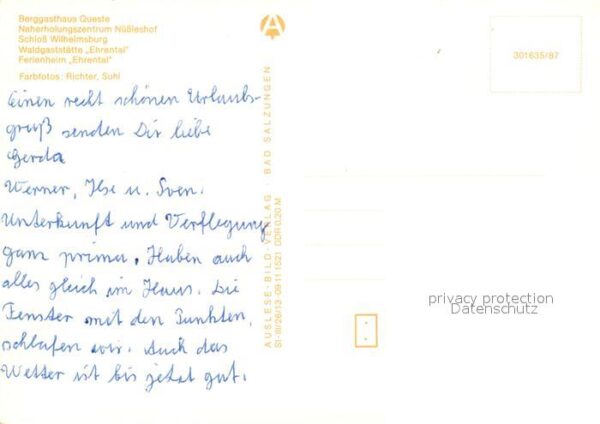 Berggasthaus Queste
Naherholungszentrum Nüßleshof
Schloß Wilhelmsburg
Waldgaststätte „Ehrental"
Ferienheim „Ehrental"
Farbfotos: Richter, Suhl
Einen recht schönen Urlaubs-
gruß senden Dir liebe
Gerda
Werner, Ilse u. Sven.
Unterkunft und Verflegung
ganz prima. Haben auch
alles gleich im Haus. Die
Fenster mit den Punkten,
schlafen wir. Auch das
Wetter ist bis jetzt gut.
AUSLESE-BILD-VERLAG · BAD SALZUNGEN
SI-III/26/13-09 11 1521 DDR 0,20 M
301635/87
privacy protection
Datenschutz